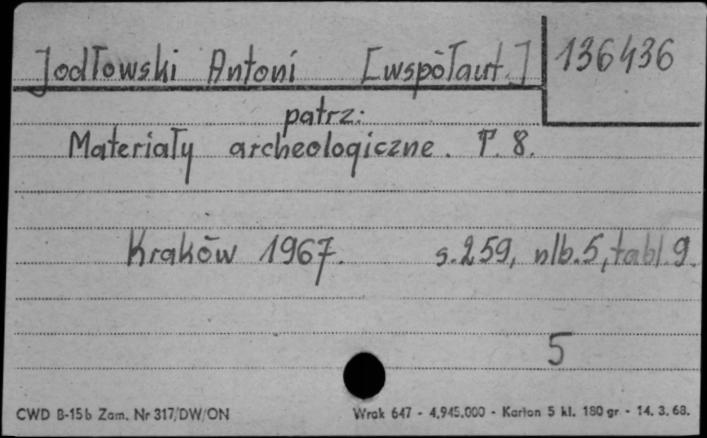 Jodłowski Antoni [współaut.] 136436
patrz:
Materiały archeologiczne. T. 8.
Kraków 1967. s. 259, nlb. 5, tabl. 9.
5
CWD B-15b Zam. Nr 317/DW/ON Wrak 647 - 4.945.000 - Karton 5 kl. 180 gr - 14. 3. 68.